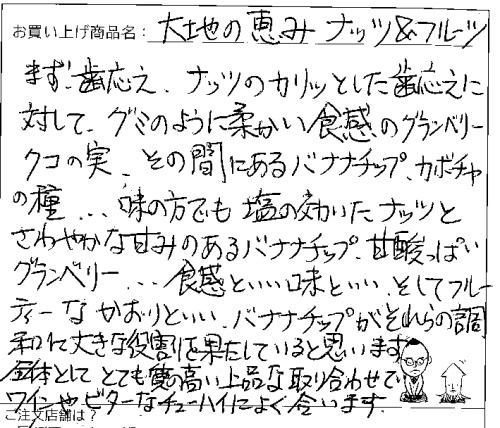 お買い上げ商品名: 大地の恵み ナッツ&フルーツ
まず、歯応え、ナッツのカリッとした歯応えに
対して、グミのように柔かい食感のグランベリー
クコの実、その間にあるバナナチップ、カボチャ
の種...味の方でも塩の効いたナッツと
さわやかな甘みのあるバナナチップ、甘酸っぱい
グランベリー...食感といい味といい、そしてフルー
ティーなかおりといい、バナナチップがそれらの調
和に大きな役割を果たしていると思います
全体としてとても質の高い上品な取り合わせで
ワインやビターなチューハイによく合います.
ご注文店舗は?